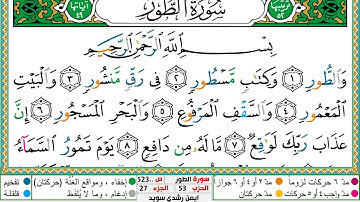 سُورَةُ الطُّورِ
بِسْمِ اللَّهِ الرَّحْمَٰنِ الرَّحِيمِ
وَالطُّورِ ١ وَكِتَابٍ مَّسْطُورٍ ٢ فِي رَقٍّ مَّنشُورٍ ٣ وَالْبَيْتِ
الْمَعْمُورِ ٤ وَالسَّقْفِ الْمَرْفُوعِ ٥ وَالْبَحْرِ الْمَسْجُورِ ٦ إِنَّ
عَذَابَ رَبِّكَ لَوَاقِعٌ ٧ مَّا لَهُ مِن دَافِعٍ ٨ يَوْمَ تَمُورُ السَّمَاءُ
مدّ ٦ حركات لزوما مدّ ٢ أو ٤ أو ٦ جوازا
مدّ واجب ٤ أو ٥ حركات مدّ حركتان
سورة الطور ص ..523
الحزب 53 الجزء 27
ايمن رشدي سويد
إخفاء، ومواقع الغُنَّة (حركتان) تفخيم
إدغام، وما لا يُلفَظ قلقلة